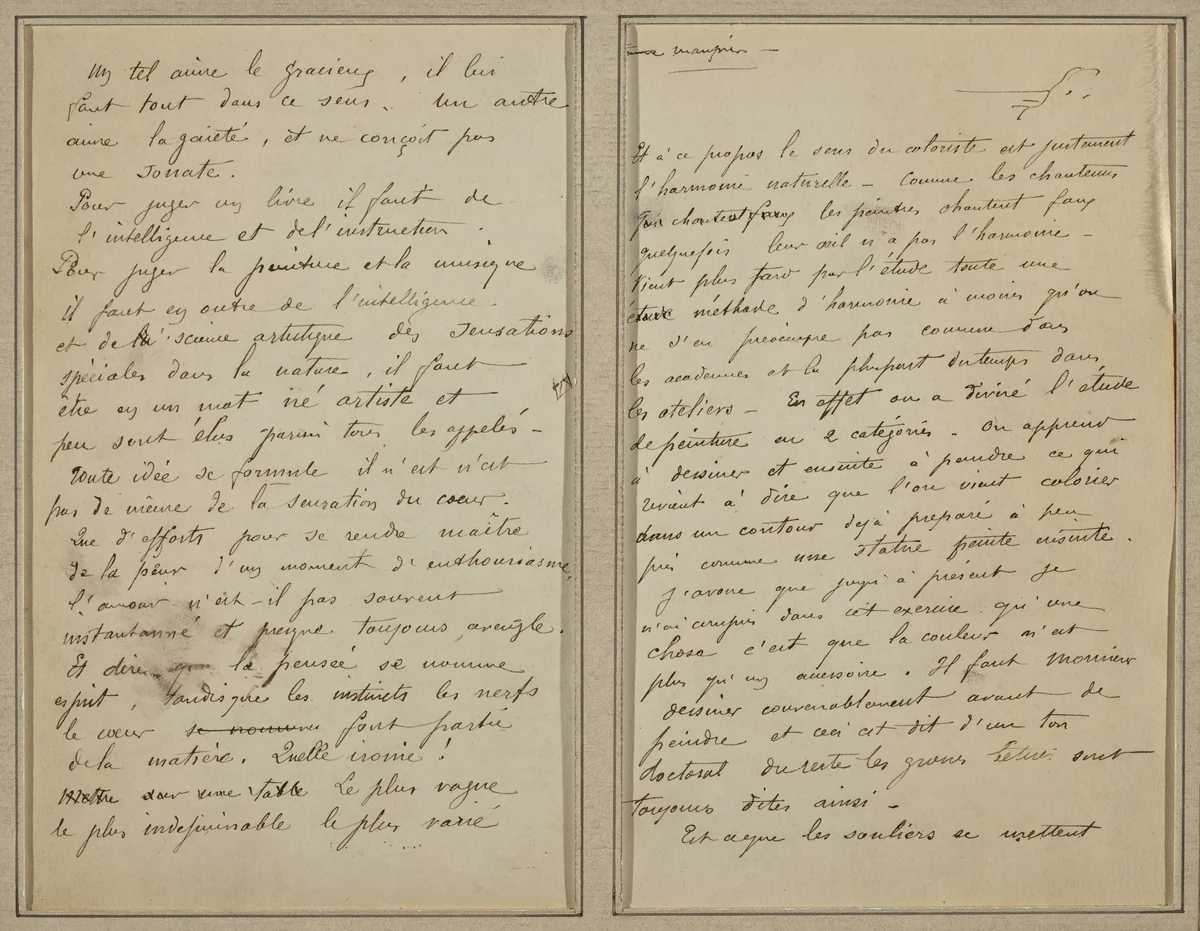 Un tel aime le gracieux, il lui
faut tout dans ce sens. Un autre
aime la gaieté, et ne conçoit pas
une Sonate.
Pour juger un livre il faut de
l'intelligence et de l'instruction.
Pour juger la peinture et la musique
il faut en outre de l'intelligence.
et de la science artistique des sensations
spéciales dans la nature, il faut
être en un mot né artiste et
peu sont élus parmi tous les appelés -
Toute idée se formule il n'est n'est
pas de même de la sensation du cœur.
Que d'efforts pour se rendre maître
de la peur d'un moment d'enthousiasme,
l'amour n'est-il pas souvent
instantanné et presque toujours aveugle.
Et dire que la pensée se nomme
esprit, tandisque les instincts les nerfs
le cœur se nomme font partie
de la matière. Quelle ironie!
Mettre sur une table Le plus vague
le plus indéfinissable le plus varié
Et à ce propos le sens du coloriste est justement
l'harmonie naturelle - Comme les chanteurs
chantent faux les peintres chantent faux
quelquefois leur œil n'a pas l'harmonie -
Vient plus tard par l'étude toute une
étude méthode d'harmonie à moins qu'on
ne s'en préoccupe pas comme dans
les academies et la plupart du temps dans
les ateliers - En effet on a divisé l'étude
de peinture en 2 catégories. On apprend
à dessiner et ensuite à peindre ce qui
revient à dire que l'on vient colorier
dans un contour dejà préparé à peu
près comme une statue peinte ensuite.
J'avoue que jusqu'à présent je
n'ai compris dans cet exercise qu'une
chose c'est que la couleur n'est
plus qu'un accessoire. Il faut Monsieur
dessiner convenablement avant de
peindre et ceci est dit d'un ton
doctoral du reste les grosses bêtises sont
toujours dites ainsi -
Est ce que les souliers se mettent